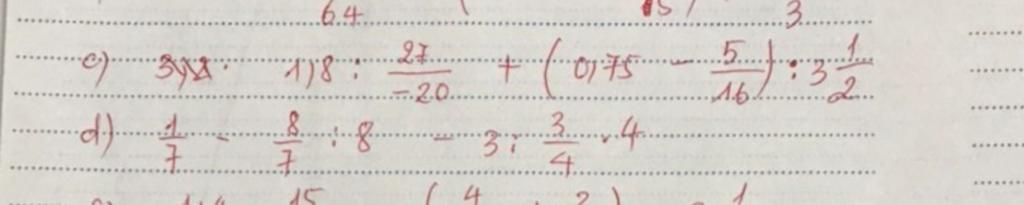 64 15 3
c) 1,8 : \frac{27}{-20} + ( 0,75 - \frac{5}{16} ) : 3 \frac{1}{2}
d) \frac{1}{7} - \frac{8}{7} : 8 - 3 : \frac{3}{4} . 4
15 ( 4 2 ) 1